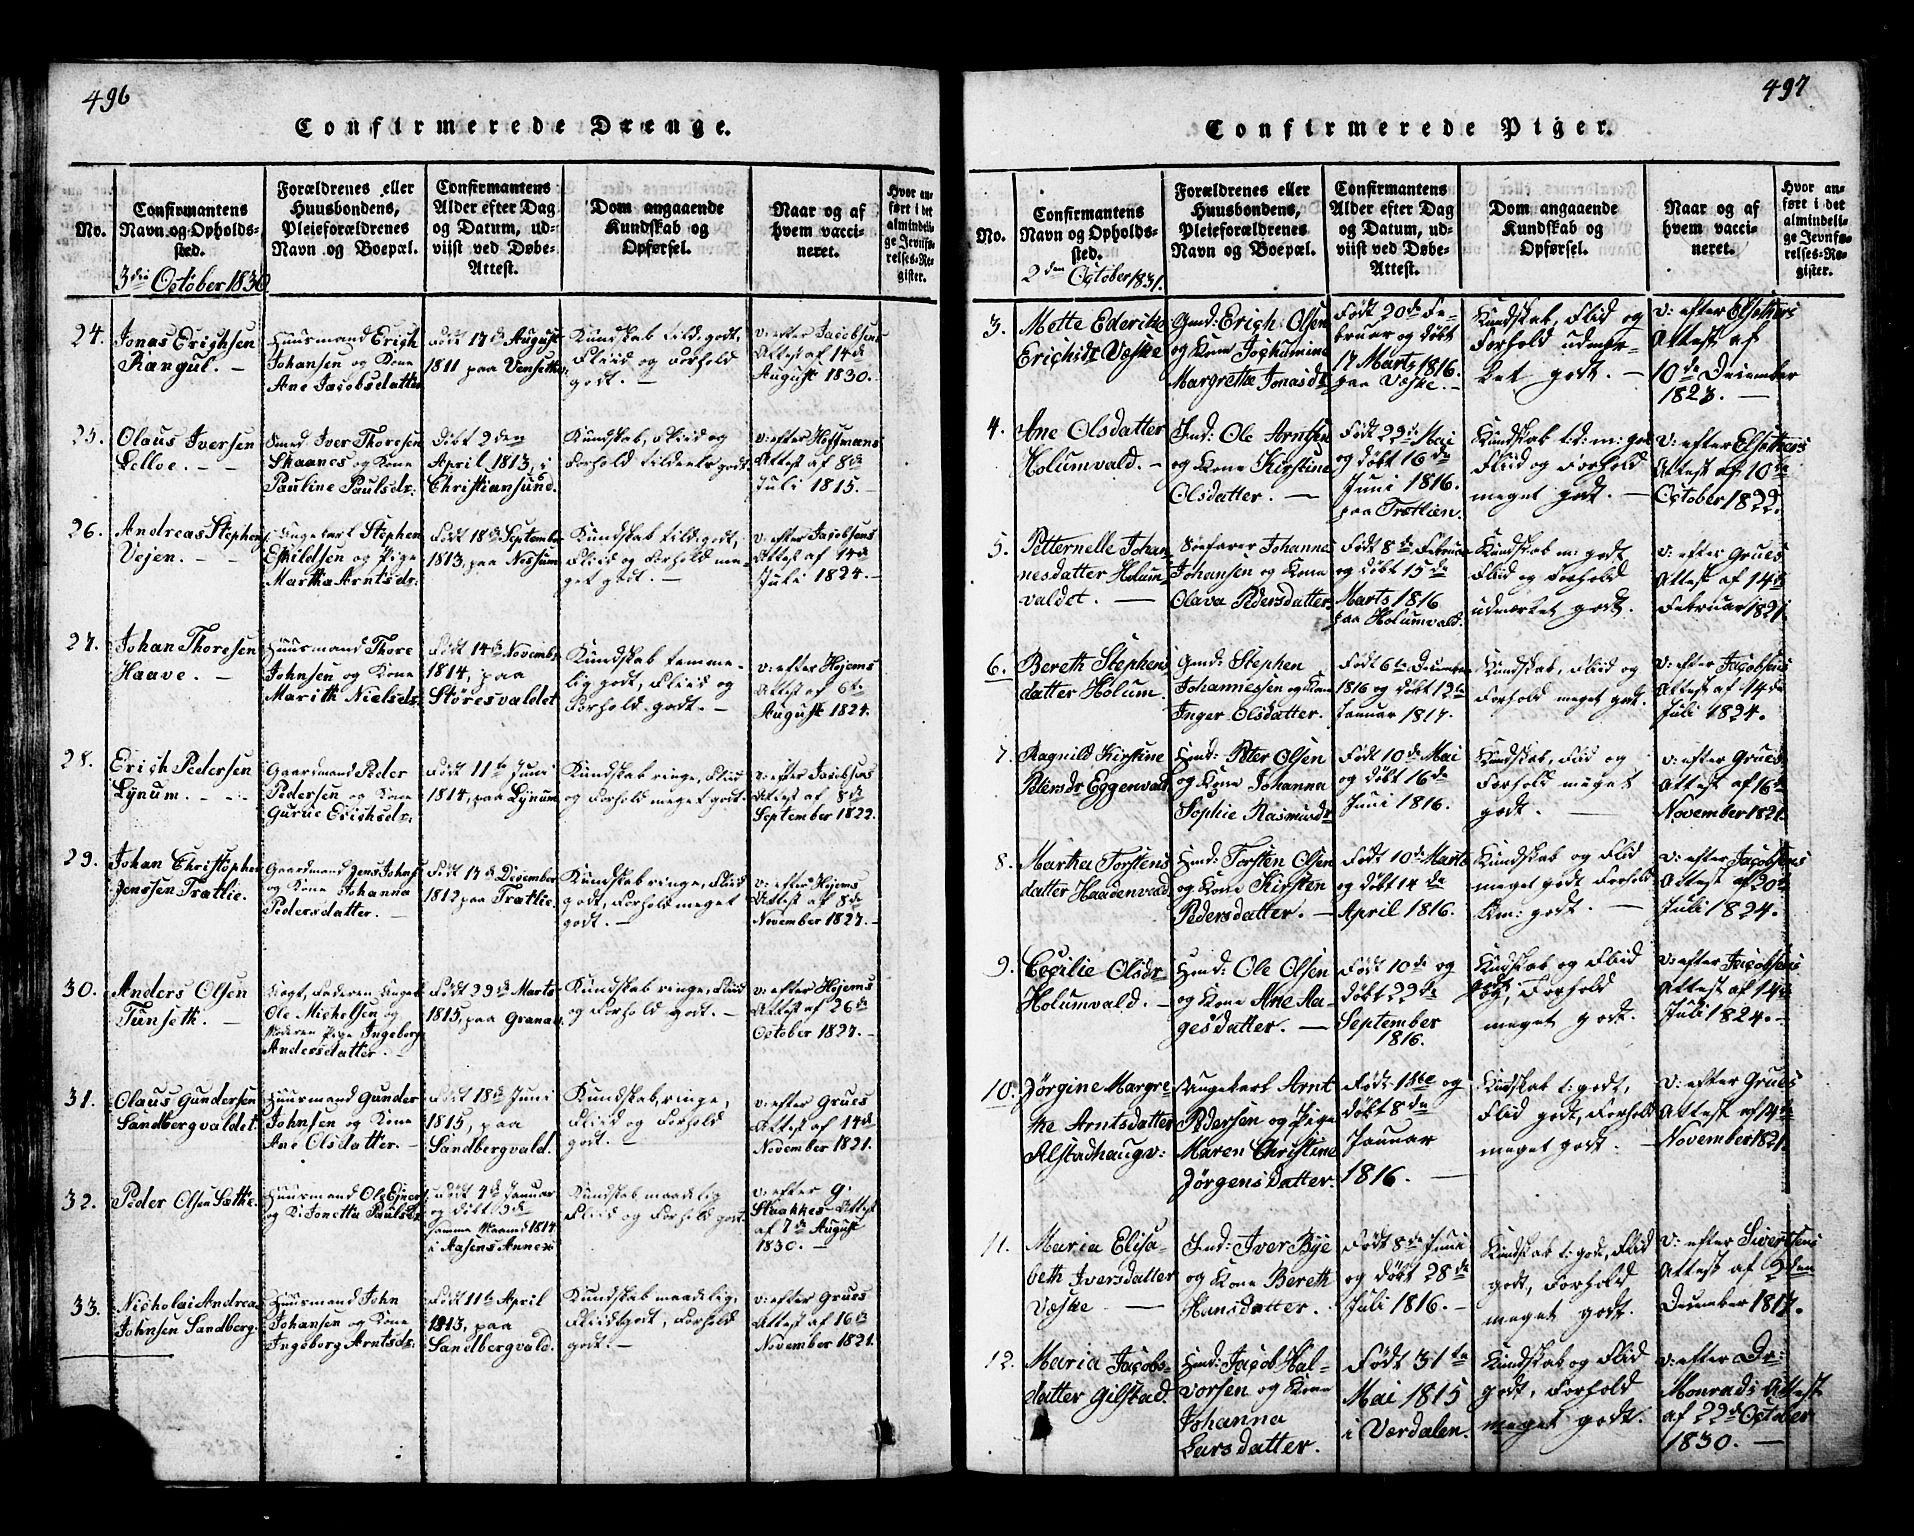 496
Confirmerede Drænge.
No.
Confirmantens
Navn og Opholds-
sted.
Forældrenes eller
Huusbondens,
Pleieforældrenes
Navn og Boepæl.
Confirmantens
Alder efter Dag
og Datum, ud-
viist ved Døbe-
Attest.
Dom angaaende
Kundskab og
Opførsel.
Naar og af
hvem vacci-
neret.
Hvor an-
ført i det
almindeli-
ge Jevnfø-
relses-Re-
gister.
3die October 1830
24.
Jonas Erichsen
Rangul. -
Huusmand Erich
Johansen og Kone
Ane Jacobsdatter
Født 17de August
1811 paa
Kundskab tild: godt,
Fliid og Forhold
godt. -
v: efter Jacobsens
Attest af 14de
August 1830.
25.
Olaus Iversen
Lelloe. - -
Smed Iver Thoresen
Skaanes og Kone
Pauline Paulsdr:
Døbt 2den
April 1813, i
Christiansund.
Kundskab, Fliid og
Forhold tildeels godt.
v: efter Hoffmans
Attest af 8de
Juli 1815. -
26.
Andreas Stephens:
Vejen. -
Ungekarl Stephen
Eskildsen og Pige
Martha Arntsdr:
Født 18de September
1813, paa Nossum
Kundskab tild: godt,
Fliid og Forhold me-
get godt. -
v: efter Jacobsens
Attest af 14de
Juli 1824. -
27.
Johan Thoresen
Haave. -
Huusmand Thore
Johnsen og Kone
Marith Nielsdr:
Født 14de Novembr
1814, paa
Störesvaldet
Kundskab temme-
lig godt, Fliid og
Forhold godt. -
v: efter Hojems
Attest af 6te
August 1824.
28.
Erich Pedersen
Lynum. - -
Gaardmand Peder
Pedersen og Kone
Gurue Erichsdr:
Født 11te Juni
1814, paa Lynum
Kundskab ringe, Fliid
og Forhold meget godt.
v: efter Jacobsens
Attest af 8de
September 1822.
29.
Johan Christopher
Jenssen Trætlie.
Gaardmand Jens Johns:
og Kone Johanna
Pedersdatter. -
Født 17de December
1812 paa Trætlie.
Kundskab ringe, Fliid
godt, Forhold meget
godt. -
v: efter Hojems
Attest af 8de
November 1827. -
30.
Anders Olsen
Tunseth. -
Ole Michelsen og
Moderen Pige Ingeborg
Andersdatter. -
Født 29de Marts
1815, paa Granaas
Kundskab ringe, Fliid
og Forhold godt. -
v: efter Hojems
Attest af 26de
October 1827. -
31.
Olaus Gundersen
Sandbergvaldet.
Huusmand Gunder
Johnsen og Kone
Ane Olsdatter. -
Født 18de Juni
1815, paa
Sandbergvald.
Kundskab, ringe,
Fliid og Forhold
godt. -
v: efter Grues
Attest af 14de
November 1821.
32.
Peder Olsen Sæthe.
Huusmand Ole Ejners:
og K: Jonetta Paulsdr
Født 4de Januar
og døbt 9de
samme Maaned 1814
i Aasens Annex
Kundskab maadelig
Fliid og Forhold godt.
v: efter G:
Staakkes Attest
af 7de August
1830. -
33.
Nicholai Andreas
Johnsen Sandberg.
Huusmand John
Johansen og Kone
Ingeborg Arntsdr:
Født 11te April
1813, paa
Sandbergvald.
Kundskab maadelig,
Fliid godt, Forhold
godt. -
v: efter Grues
Attest af 16de
November 1821.
497
Confirmerede Piger.
No.
Confirmantens
Navn og Opholds-
sted.
Forældrenes eller
Huusbondens,
Pleieforældrenes
Navn og Boepæl.
Confirmantens
Alder efter Dag
og Datum, ud-
viist ved Døbe-
Attest.
Dom angaaende
Kundskab og
Opførsel.
Naar og af
hvem vacci-
neret.
Hvor an-
ført i det
almindeli-
ge Jevnfø-
relses-Re-
gister.
2den October 1831.
3.
Mette Ederikke
Erichsdr Væske
Gmd: Erich Olsen
og Kone Jochumine
Margrethe Jonasdr
Født 20de Fe-
bruar og døbt
17 Marts 1816.
paa Væske. -
Kundskab, Flid og
Forhold udmær-
ket godt. -
v: efter Elsethers
Attest af
10de December
1823. -
4.
Ane Olsdatter
Holumvald. -
Ind: Ole Arntsen
og Kone Kirstine
Olsdatter. -
Født 22de Mai
og døbt 16de
Juni 1816.
paa Trætlien.
Kundskab t:d: m: godt
Fliid og Forhold
meget godt. -
v: efter Elsethers
Attest af 10de
October 1822.
5.
Petternelle Johan-
nesdatter Holum-
valdet. -
Søefarer Johannes
Johansen og Kone
Olava Pedersdatter.
Født 8de Februar
og døbt 15de
Marts 1816
paa Holumvald.
Kundskab m: godt
Fliid og Forhold
udmærket godt.
v: efter Grues
Attest af 14de
Februar 1821.
6.
Bereth Stephens-
datter Holum.
Gmd: Stephen
Johannessen og Kone
Inger Olsdatter.
Født 6te December
1816 og døbt 12te
Januar 1817.
Kundskab, Fliid og
Forhold meget godt.
v: efter Jacobsens
Attest af 14de
Juli 1824.
7.
Ragnild Kirstine
Petersdr Eggenvald.
Hmd: Peter Olsen
og Kone Johanna
Sophie Rasmusdr
Født 10de Mai
og døbt 16de
Juni 1816.
Kundskab, Flid og
Forhold meget
godt. -
v: efter Grues
Attest af 16de
November 1821.
8.
Martha Torstens-
datter Haadenvald.
Hmd: Torsten Olsen
og Kone Kirsten
Pedersdatter. -
Født 10de Marts
og døbt 14de
April 1816.
Kundskab og Flid
meget godt Forhold
tem: godt. -
v: efter Jacobsens
Attest af 20de
Juli 1824.
9.
Cecilie Olsdr
Holumvald. -
Hmd: Ole Olsen
og Kone Ane Aa-
gesdatter. -
Født 10de og
døbt 22de
September
1816.
Kundskab og Fliid
godt, Forhold
meget godt.
v: efter Jacobsens
Attest af 14de
Juli 1824. -
10.
Jörgine Margre-
the Arntsdatter
Alstadhaugv:
Ungekarl Arnt
Pedersen og Pige
Maren Christine
Jörgensdatter.
Født 1ste og
døbt 8de
Januar
1816. -
Kundskab t: godt,
Flid godt, Forhold
meget godt. -
v: efter Grues
Attest af 14de
November 1821.
11.
Maria Elisa-
beth Iversdatter
Væske -
Ind: Iver Bye
og Kone Bereth
Hansdatter.
Født 8de Juni
og døbt 28de
Juli 1816. -
Kundskab t: godt, Flid
godt, Forhold
meget godt.
v: efter Sivertsens
Attest af 2den
December 1817.
12.
Maria Jacobs-
datter Gilstad.
Hmd: Jacob Hal-
vorsen og Kone
Johanna
Larsdatter.
Født 31te
Mai 1815
i Værdalen.
Kundskab og Flid
godt, Forhold
meget godt.
v: efter Dr:
Monrads Attest
af 22de October
1830. -